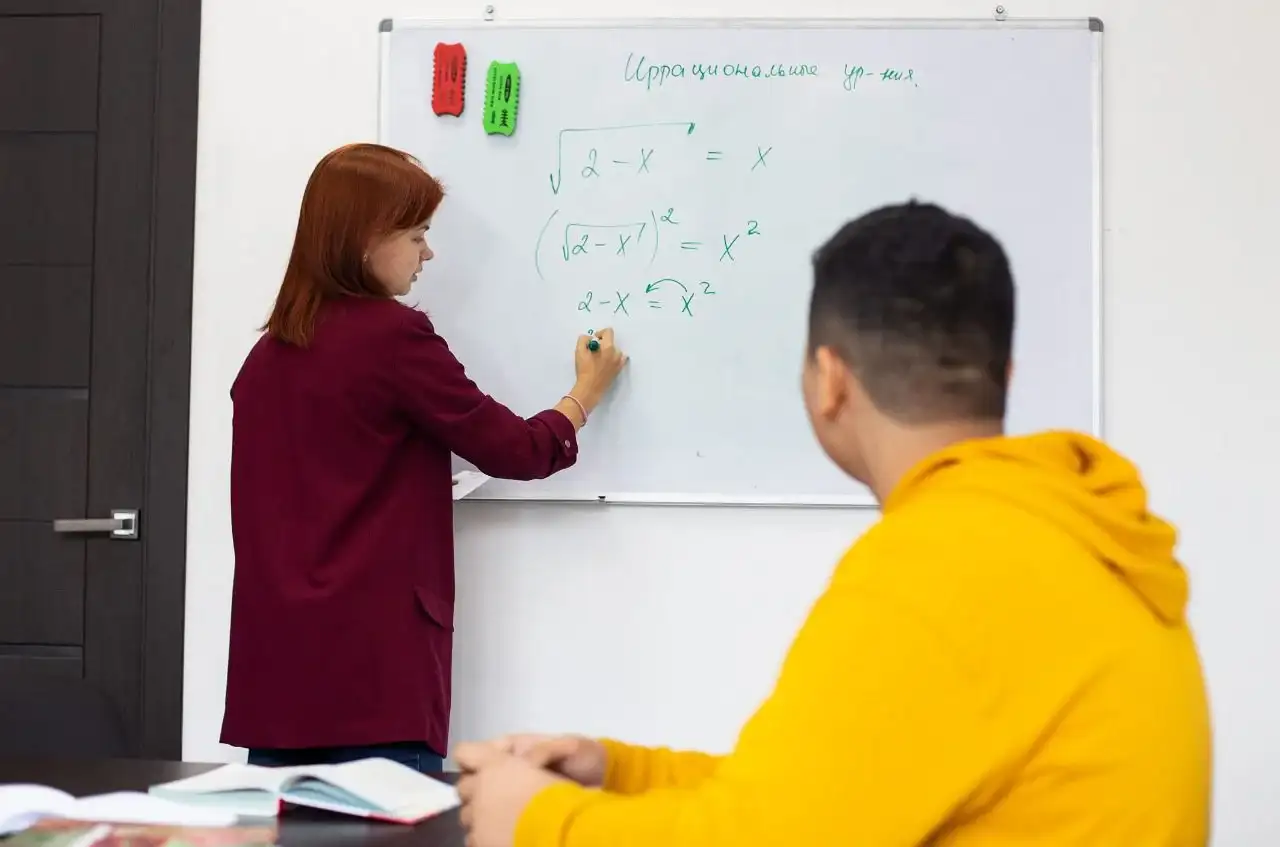 Иррациональные ур-ния.
√2 - x = x
(√2 - x)² = x²
2 - x = x²